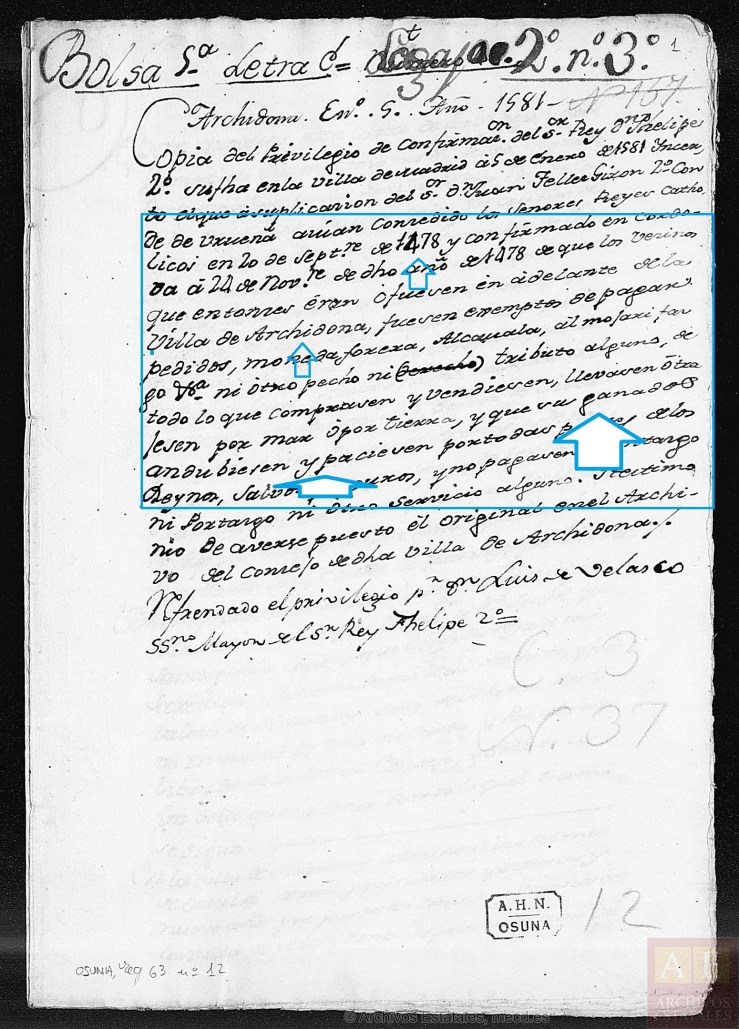 Bolsa 5.ª Letra C.= Leg.º 2.º n.º 3.º 1
3
Archidona. En.º 5. Año - 1581 - Nº 157
Copia del Privilegio de Confirmac.on del S.or Rey D.n Phelipe
2.º su fha en la Villa de Madrid a 5 de Enero de 1581 Incer
to el que a suplicacion del S.or D.n Juan Tellez Giron 2.º Con
de de Vrueña auian concedido los Señores Reyes Catho
licos en 20 de Sept.re de 1478 y confirmado en Cordo-
va á 24 de Nov.re de dho año de 1478 de que los Vecinos
que entonces eran ó fuesen en adelante de la
Villa de Archidona, fuesen exemptos de pagar
pedidos, moneda forera, Alcauala, almojarifaz
go ni otro pecho ni (derecho) tributo alguno, de
todo lo que comprasen y vendiesen, llevasen ó tra
jesen por mar ó por tierra, y que sus ganados
andubiesen y paciesen por todas de los
Reynos, Salvos, y no pagasen
ni Portazgo ni otro Servicio alguno. Testimo
nio de averse puesto el original en el Archi-
vo del Consejo de dha Villa de Archidona.
Refrendado el privilegio p.r D.n Luis de Velasco
SS.no Mayor del S.r Rey Phelipe 2.º=
C 3
N. 37
A.H.N.
OSUNA
12
OSUNA, leg 63. nº 12
AE
ARCHIVOS
ESTATALES
© Archivos Estatales, mecd.es